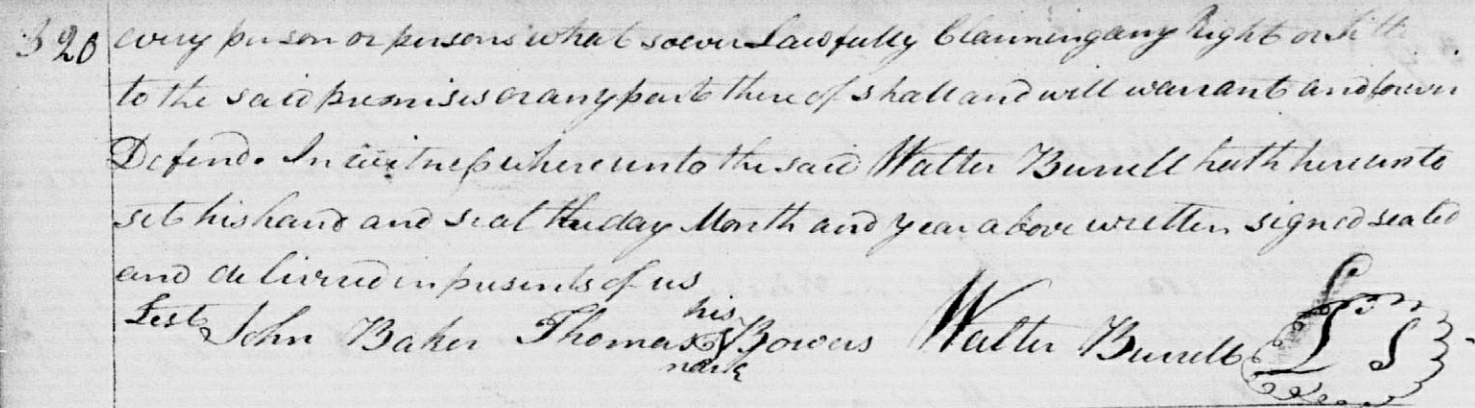 320 every person or persons what soever Lawfully Claiming any Right or Title
to the said premises or any part there of shall and will warrant and forever
Defend. In witness whereunto the said Walter Burrell hath hereunto
set his hand and seal the day Month and year above written signed sealed
and delivered in presents of us
Test John Baker Thomas his mark Bowers Walter Burrell LS